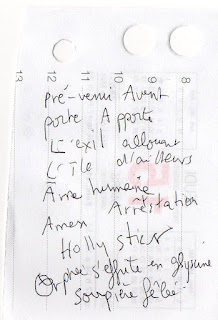 13 12 11 10 9 8
pré-venu Avant
porte Apporte
L'exil allouant
L'île d'ailleurs
Ame humaine
Arrestation
Amen
Holly
Orphée s'effrite en glycine
soupière fêlée